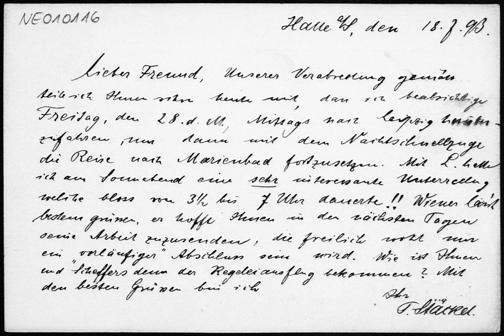 NE010116
Halle a/S, den 18.7.93.
Lieber Freund, Unserer Verabredung gemäss
teile ich Ihnen schon heute mit, dass ich beabsichtige
Freitag, den 28. d. M., Mittags nach Leipzig
zufahren, um dann mit dem Nachtschnellzuge
die Reise nach Marienbad fortzusetzen. Mit L. hatte
ich am Sonnabend eine sehr interessante Unterredung
welche bloss von 3½ bis 7 Uhr dauerte!! Wiener lässt
bestens grüssen, er hofft Ihnen in den nächsten Tagen
seine Arbeit zuzusenden, die freilich wohl nur
ein "vorläufiger" Abschluss sein wird. Wie ist Ihnen
und Scheffers denn der Kegeleiausflug bekommen? Mit
den besten Grüssen bin ich
Ihr
P. Stäckel.